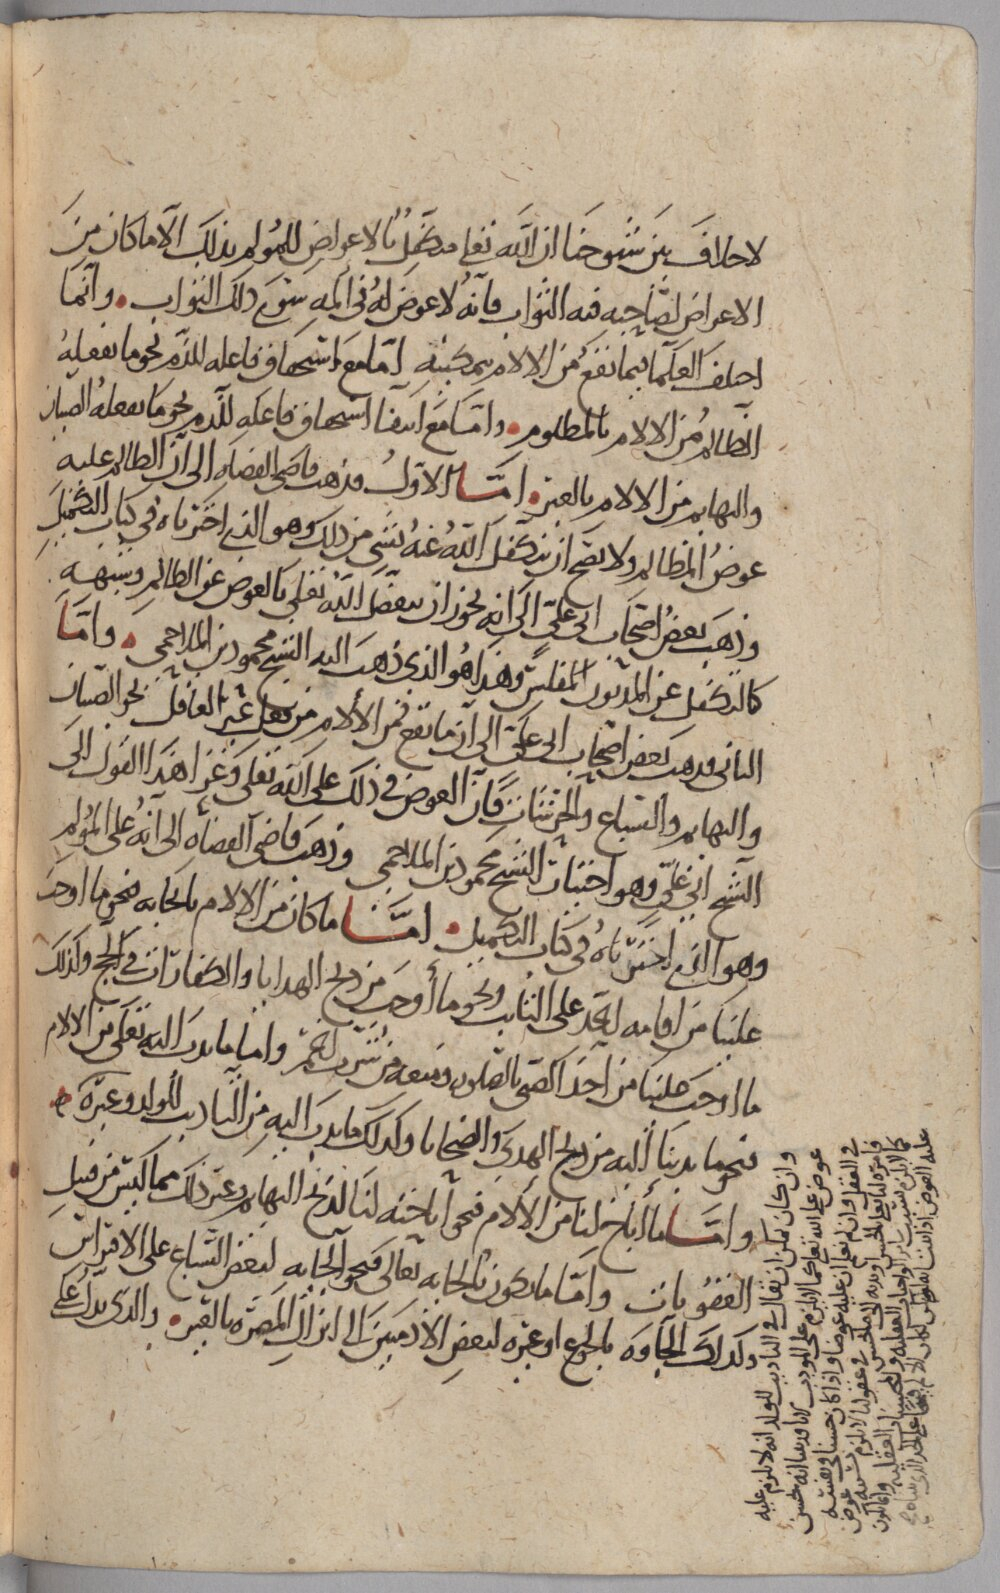 لا خلاف بين شيوخنا ان الله تعلى متكفل بالاعواض للمولم بذلك الا ما كان من
الاعواض لصاحبه فيه الثواب فانه لا عوض له في المه سوى ذلك الثواب وانما
اختلف العلما فيما يقع من الالام بتمكينه اما مع استحقاق فاعله للذم نحو ما يفعله
الظالم من الالام بالمظلوم واما مع انتفا استحقاق فاعله للذم نحو ما يفعله الصبيان
والبهايم من الالام بالغير اما الاول فذهب قاضي القضاه الى ان الظالم عليه
عوض المظالم ولا يصح ان يتكفل الله عنه بشي من ذلك وهو الذي اخترناه في كتاب التكميل
وذهب بعض اصحاب ابي علي الى انه يجوز ان يتفضل الله تعلى بالعوض عن الظالم وشبهه
كالتكفل عن المديون المفلس وهذا هو الذي ذهب اليه الشيخ محمود بن الملاحمي واما
الثاني فذهب بعض اصحاب ابي علي الى ان ما يقع من الالام من فعل غير العاقل نحو الصبيان
والبهايم والسباع والحشرات فان العوض في ذلك على الله تعلى وعزا هذا القول الى
الشيخ ابي علي وهو اختيار الشيخ محمود بن الملاحمي وذهب قاضي القضاه الى انه على المولم
وهو الذي اخترناه في كتاب التكميل اما ما كان من الالام بايجابه فنحو ما اوجب
علينا من اقامه الحد على التايب ونحو ما اوجب من ذبح الهدايا والكفارات في الحج وكذلك
ما اوجب علينا من اخذ الصبي بالصلوه ومنعه من شرب الخمر واما ما ندب الله تعلى من الالام
فنحو ما ندبنا اليه من ذبح الهدي والضحايا وكذلك ما ندب اليه من التاديب للولد وغيره
واما ما اباح لنا من الالام فنحو اباحته لنا لذبح البهايم وغير ذلك مما ليس من قبيل
العقوبات واما ما يكون بالجايه تعالى فنحو الجايه لبعض السباع على الافتراس
وكذلك الجاوه بالجوع او غيره لبعض الادميين الى انزال المضره بالغير والذي يدل على
وان كان يمكن ان يقال في التاديب للولد انه لا يلزم عليه
عوض على الله تعالى كما لا يلزم على المودب لانا وربما انه حسن
في العقل وان لم يعلم ان عليه عوضا واذا كان حسنا في نفسه